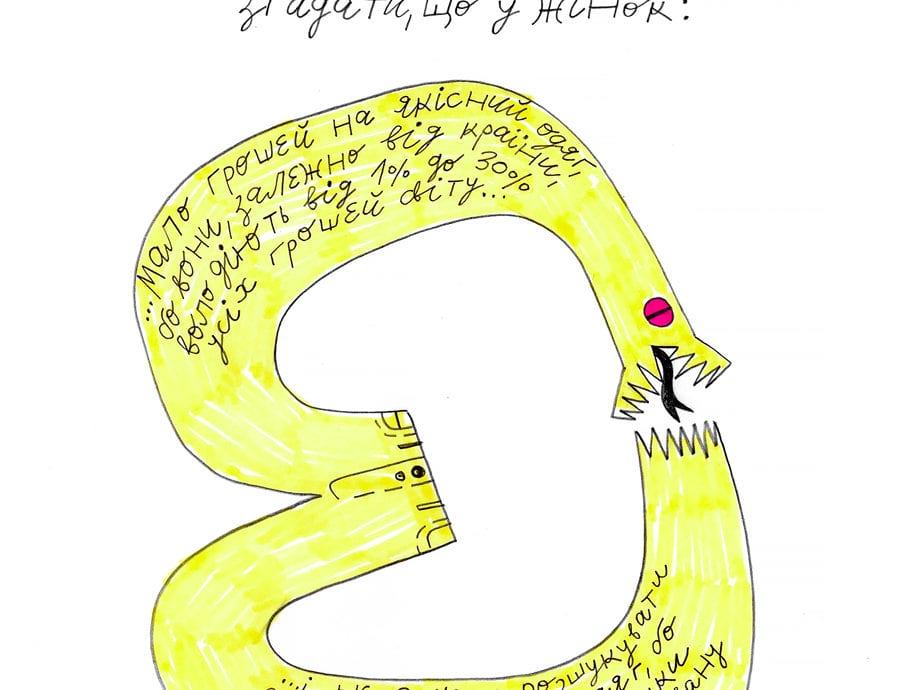 згадати, що у жінок:
...Мало грошей на якісний одяг,
бо вони, залежно від країни,
володіють від 1% до 30%
усіх грошей світу...
розшукувати
бо